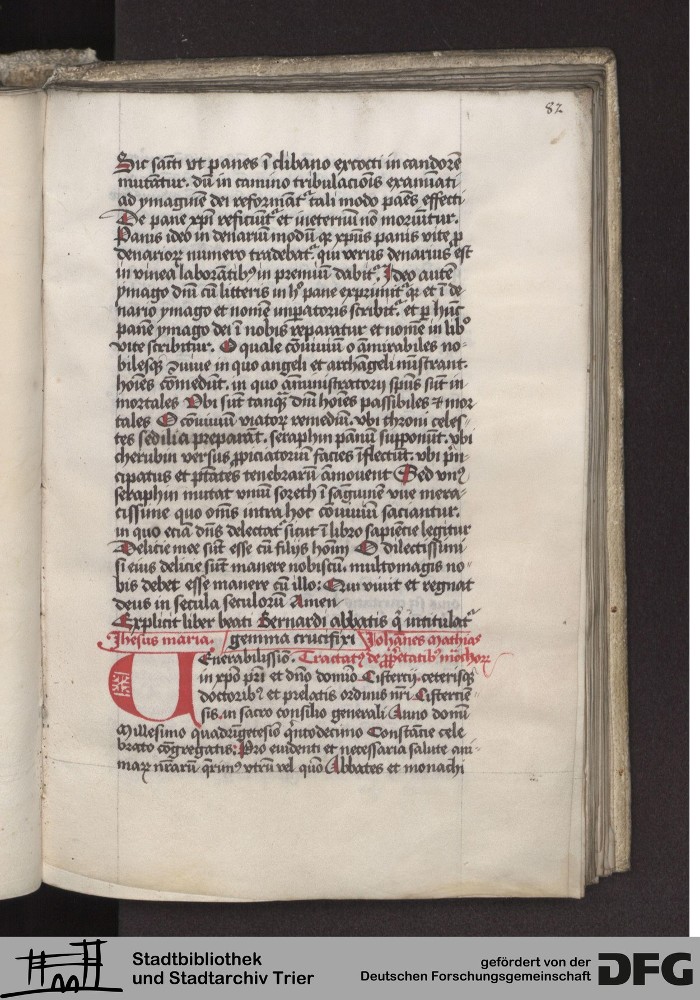 82
Sic sancti vt panes ī clibano excocti in candorē
mutātur. dū in camino tribulacioīs exanīati
ad ymaginē dei reformāt᷑ tali modo paēs effecti
De pane xp̄i reficiūt᷑ et in eternū nō moriūtur.
Panis ideo in denariū modū qꝛ xp̄us panis vite ꝓ
denarioꝝ numero tradebat᷑. qui verus denarius est
in vinea laborātibꝰ in premiū dabit᷑. Ideo autē
ymago dn̄i cū litteris in hᵒ pane exprimit᷑ qꝛ et ī de-
nario ymago et nomē imꝑatoris scribit᷑. et ꝑ hūc
panē ymago dei ī nobis reparatur et nomē in libᵒ
vite scribitur. O quale cōuiuiū o āmirabiles no-
bilesqꝫ diuine in quo angeli et archāgeli mīstrant.
hoīes comedūt. in quo āministratorij sp̄us sūt in
mortales Vbi sūt tanqꝫ dn̄i hoīes passibiles ⁊ mor
tales O cōuiuiū viatoꝝ remediū. vbi throni celes-
tes sedilia preparāt. seraphin panū supponūt. vbi
cherubin versus ꝓpiciatoriū facies īflectūt. vbi p̄n-
cipatus et p̄tātes tenebrarū āmouent Sed vnꝰ
seraphin mutat vinū soreth ī sāguinē vue mera-
cissime quo om̄s intra hoc cōuiuiū saciantur.
in quo eciā dn̄s delectat᷑ sicut ī libro sapiencie legitur
Delicie mee sūt esse cū filijs hoīm O dilectissimi
si eius delicie sūt manere nobiscū. multomagis no-
bis debet esse manere cū illo: Qui viuit et regnat
deus in secula seculorū Amen
Explicit liber beati Bernardi abbatis q̄ intitulat᷑
Jhesus maria. gemma crucifixi Johānes Mathias
VEnerabilissīo. Tractatꝰ de ꝓp̄etatibꝰ mōchoꝝ
in xp̄o pr̄i et dn̄o domīo Cistercij. ceterisqꝫ
doctoribꝰ et prelatis ordinis nr̄i Cistercien̄-
sis. in sacro consilio generali Anno domī
Millesimo quadrīgētesīo q̄ntodecimo Constācie cele
brato cōgregatis: Pro euidenti et necessaria salute ani-
maꝝ nr̄arū q̄rimꝰ vtrū vel quō Abbates et monachi
Stadtbibliothek
und Stadtarchiv Trier
gefördert von der
Deutschen Forschungsgemeinschaft
DFG